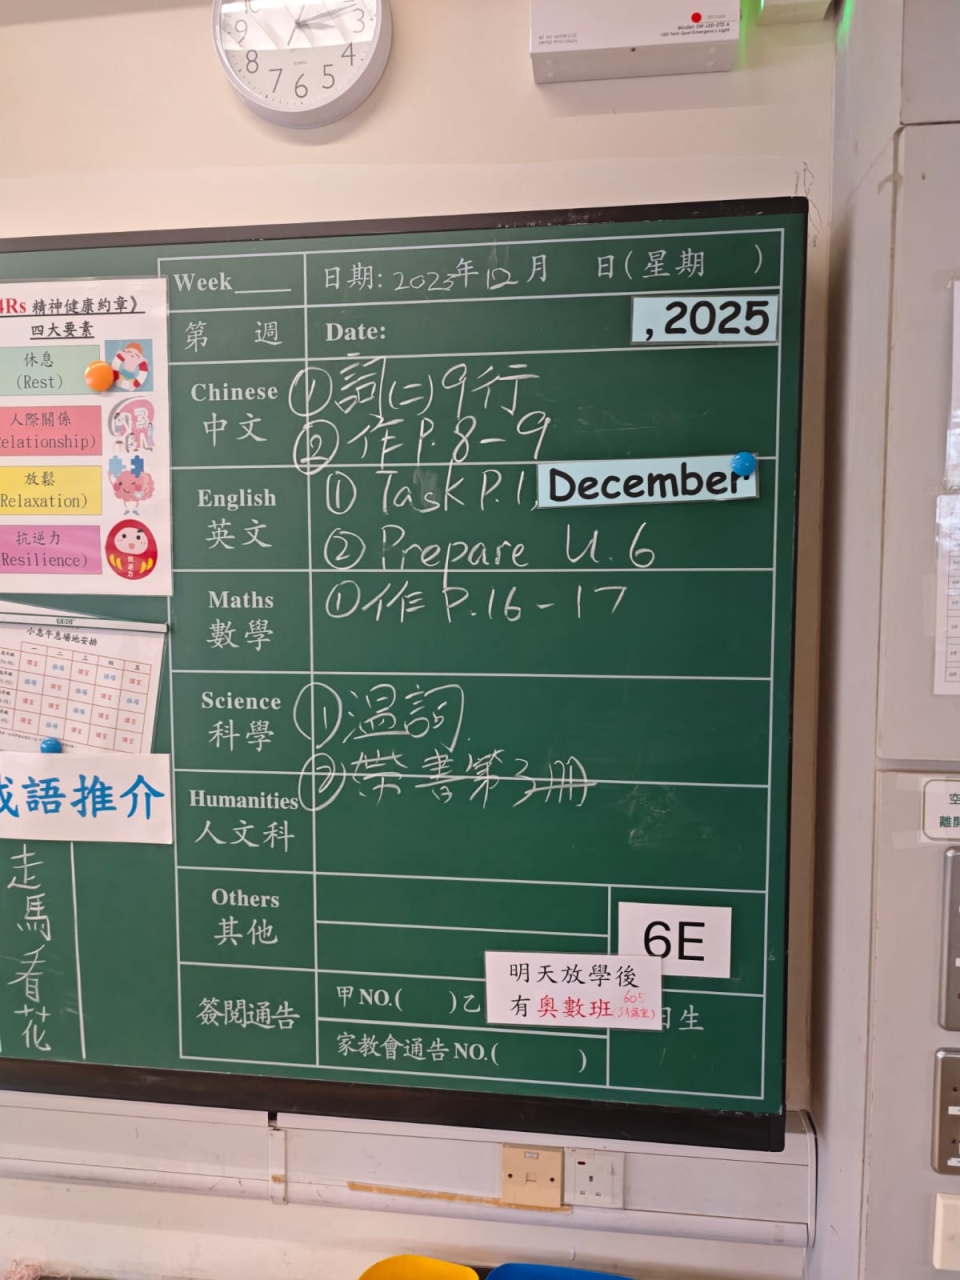 Week
日期: 2025年12月　日(星期　)
第　週
Date:
, 2025
Chinese
中文
① 詞(二) 9行
② 作 P. 8 - 9
English
英文
① Task P. 1,
December
② Prepare U. 6
Maths
數學
① 作 P. 16 - 17
Science
科學
① 溫詞
② 帶書第3冊
Humanities
人文科
Others
其他
6E
簽閱通告
甲NO.(　)乙
家教會通告NO.(　)
明天放學後
有奧數班
605
日生
4Rs 精神健康約章》
四大要素
休息
(Rest)
人際關係
elationship)
放鬆
Relaxation)
抗逆力
Resilience)
小息午息場地安排
一 二 三 四 五
成語推介
走馬看花
12
2
3
4
5
6
7
8
9
QUARTZ
LED Twin-Spot Emergency Light
空
離開